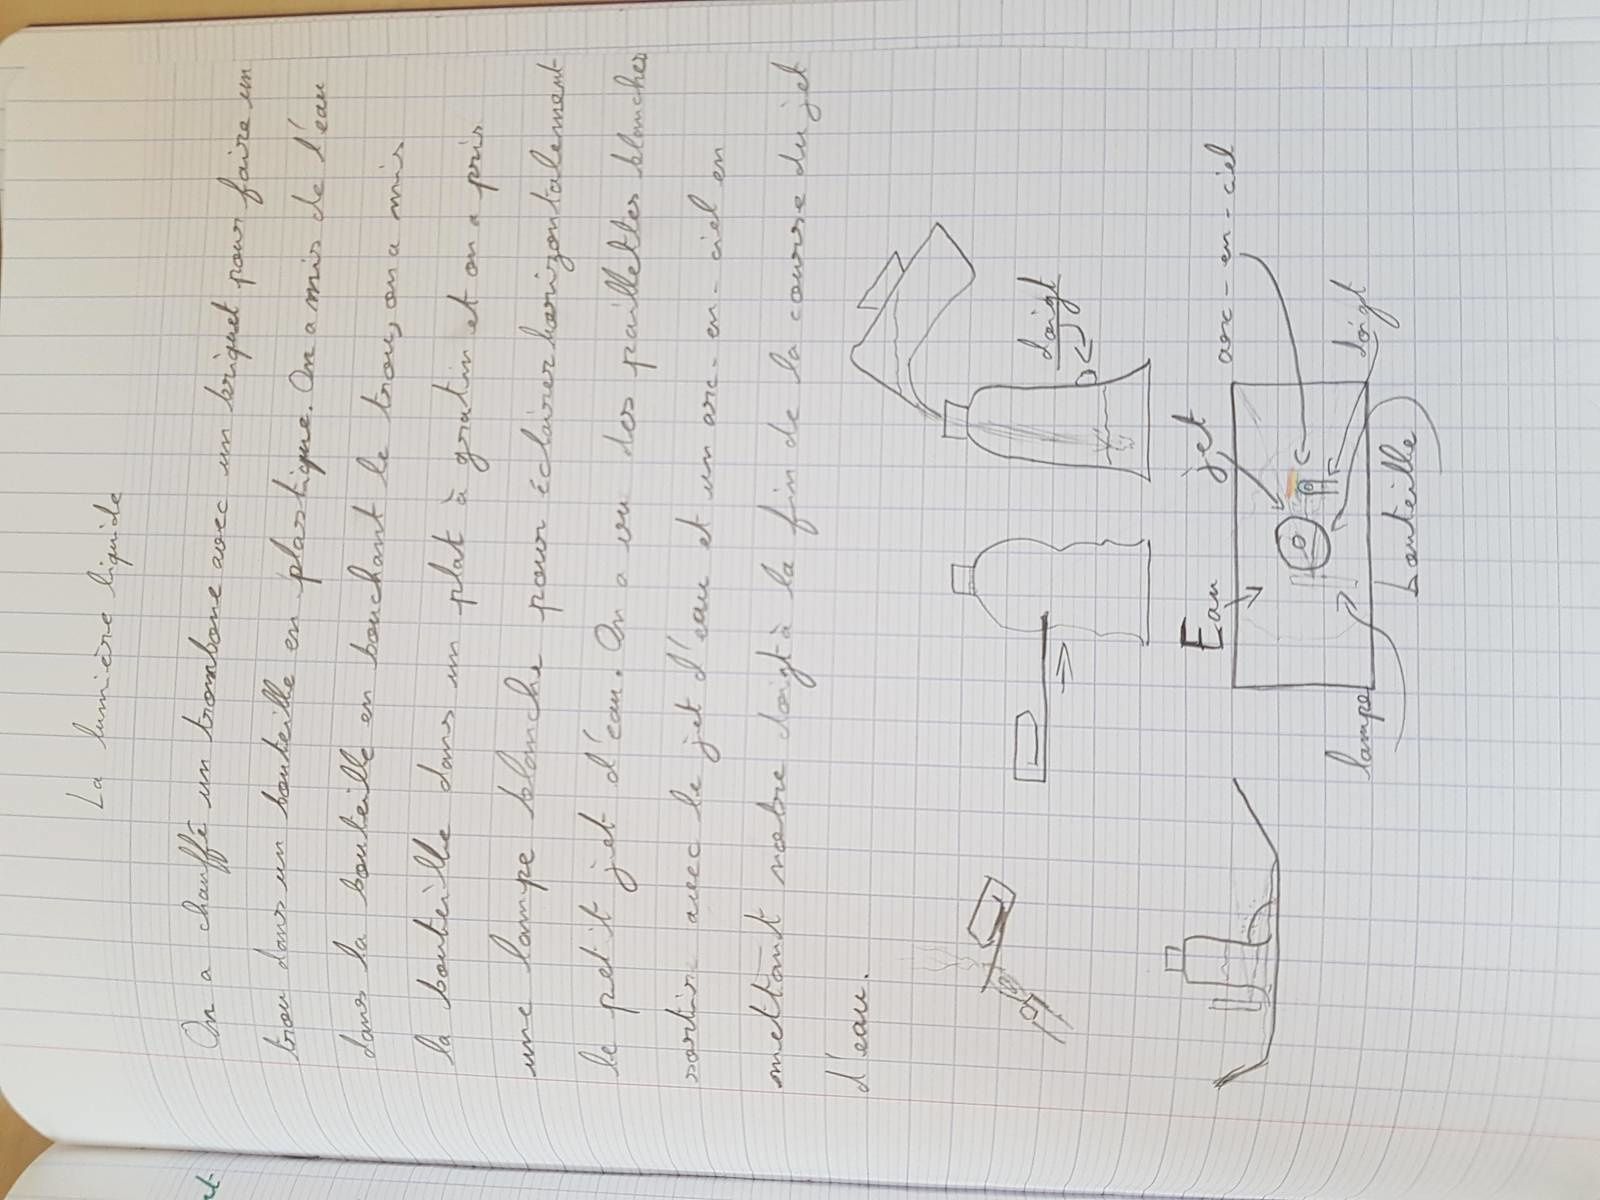 La lumière liquide
On a chauffé un trombone avec un briquet pour faire un
trou dans un bouteille en plastique. On a mis de l'eau
dans la bouteille en bouchant le trou, on a mis
la bouteille dans un plat à gratin et on a pris
une lampe blanche pour éclairer horizontalement
le petit jet d'eau. On a vu des paillettes blanches
sortir avec le jet d'eau et un arc-en-ciel en
mettant notre doigt à la fin de la course du jet
d'eau.
doigt
Eau
jet
arc-en-ciel
lampe
bouteille
doigt